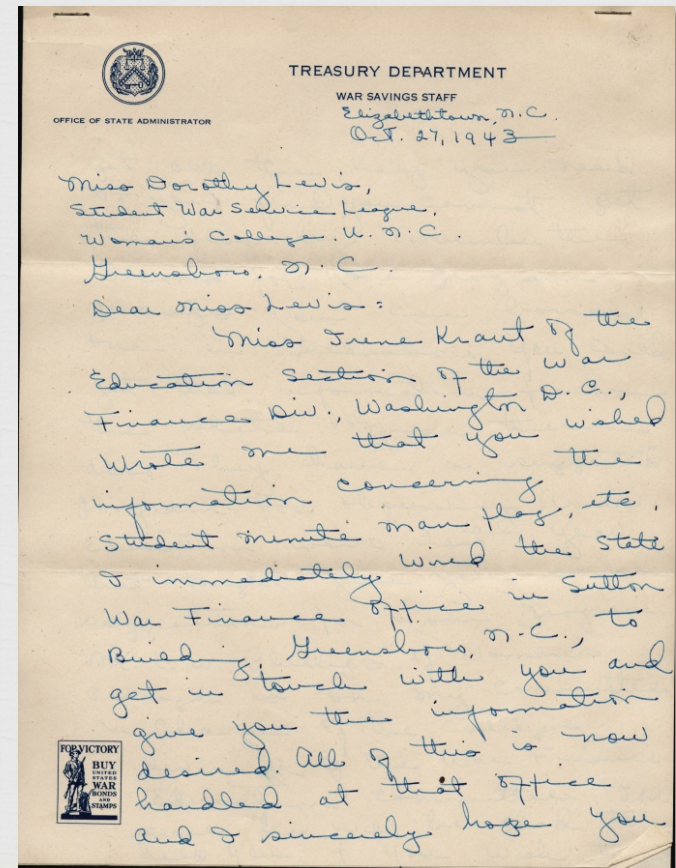 TREASURY DEPARTMENT
WAR SAVINGS STAFF
OFFICE OF STATE ADMINISTRATOR
Elizabethtown, N.C.
Oct. 27, 1943
Miss Dorothy Levis,
Student War Service League,
Woman's College, U.N.C.
Greensboro, N.C.
Dear Miss Levis:
Miss Irene Kraut of the
Education Section of the War
Finance Div., Washington D.C.,
wrote me that you wished
information concerning the
Student Minute Man flag, etc.
I immediately wired the State
War Finance office in Sutton
Building, Greensboro, N.C., to
get in touch with you and
give you the information
desired. All of this is now
handled at that office
and I sincerely hope you
FOR VICTORY
BUY
UNITED
STATES
WAR
BONDS
AND
STAMPS